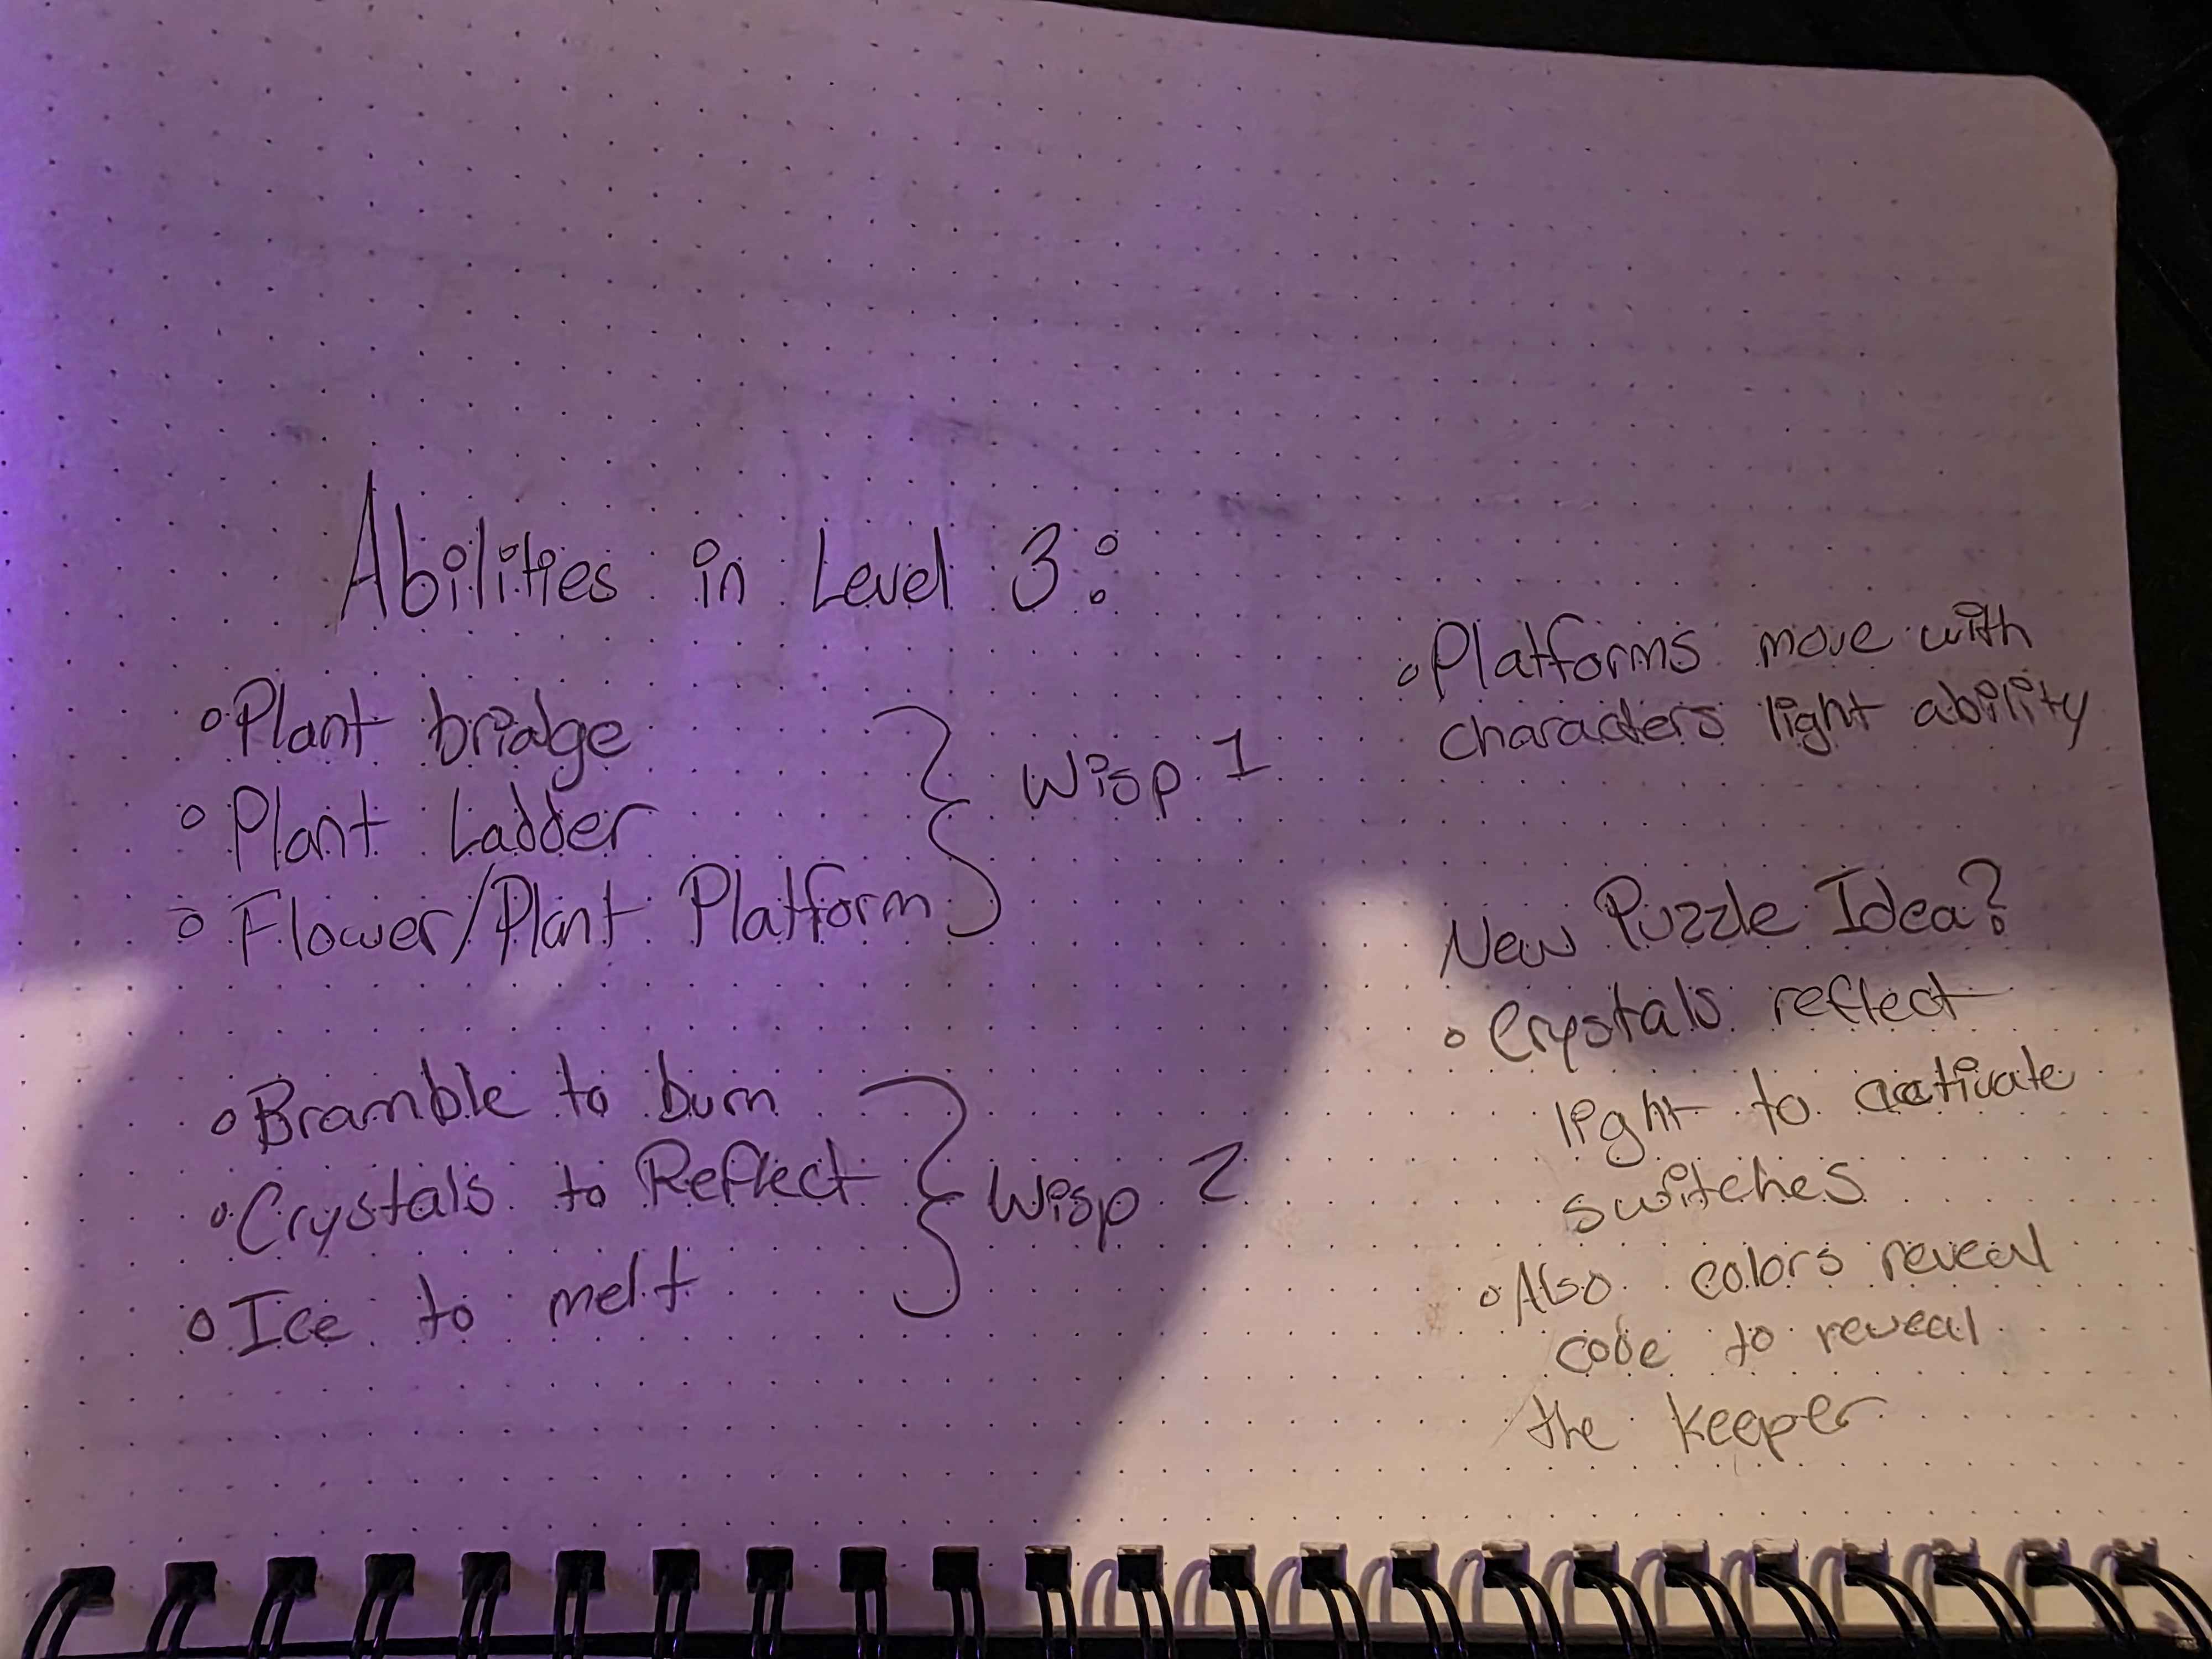 Abilities in Level 3:
◦ Plant bridge
◦ Plant Ladder
◦ Flower/Plant Platform
Wisp 1
◦ Bramble to burn
◦ Crystals to Reflect
◦ Ice to melt
Wisp 2
◦ Platforms move with
characters light ability
New Puzzle Idea?
◦ Crystals reflect
light to activate
switches
◦ Also colors reveal
code to reveal
the keeper